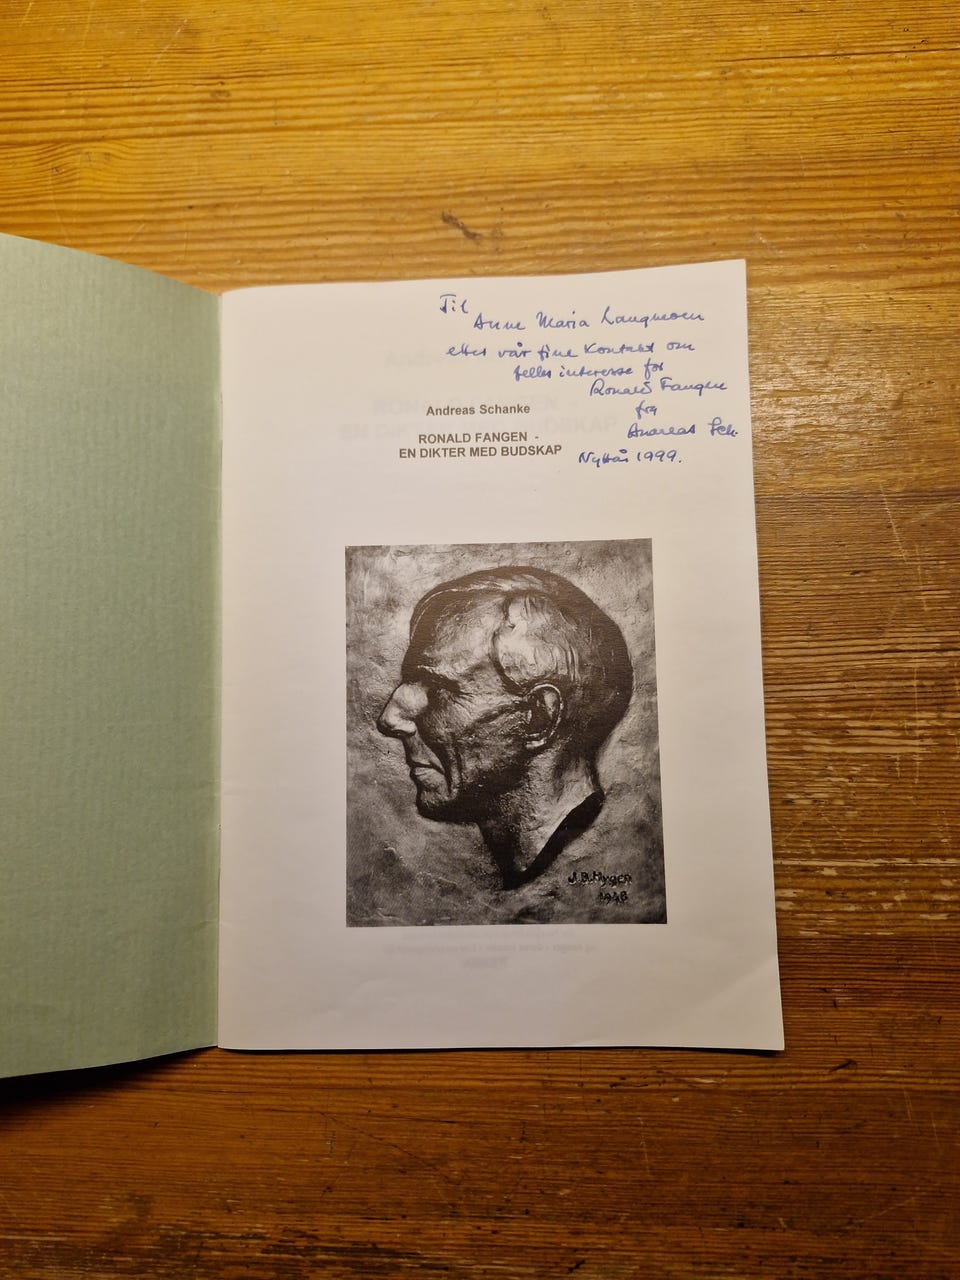 Til
Anne Maria Langmoen
etter vår fine kontakt om
felles interesse for
Ronald Fangen
fra
Andreas Sch.
Nyttår 1999.
Andreas Schanke
RONALD FANGEN -
EN DIKTER MED BUDSKAP
J.B. Hygen
1948